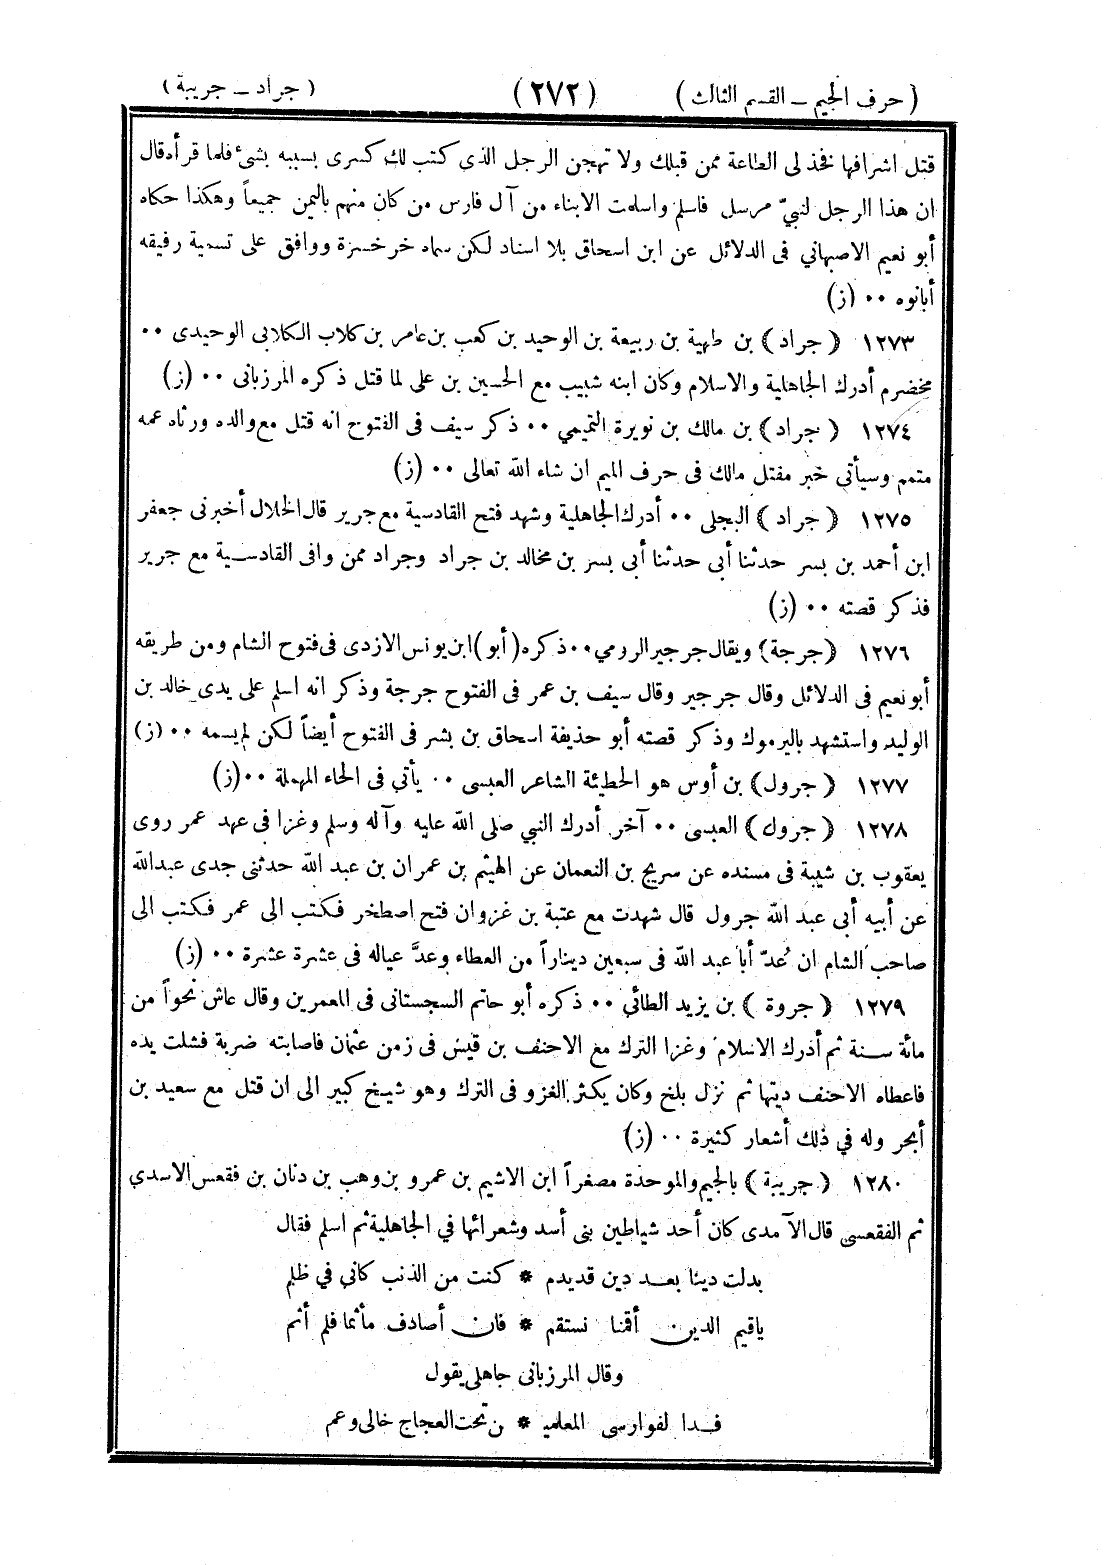 ( حرف الجيم ــ القسم الثالث ) ( ٢٧٢ ) ( جراد ــ جريبة )
قتل اشرافها فخذ لى الطاعة ممن قبلك ولا تهجن الرجل الذى كتب لك كسرى بسببه بشئ فلما قرأه قال
ان هذا الرجل لنبيّ مرسل فاسلم واسلمت الابناء من آل فارس من كان منهم باليمن جميعاً وهكذا حكاه
أبو نعيم الاصبهاني فى الدلائل عن ابن اسحاق بلا اسناد لكن سماه خرخسرة ووافق على تسمية رفيقه
أبانوه ٠٠ (ز)
١٢٧٣ ( جراد ) بن طهية بن ربيعة بن الوحيد بن كعب بن عامر بن كلاب الكلابى الوحيدى ٠٠
مخضرم أدرك الجاهلية والاسلام وكان ابنه شبيب مع الحسين بن على لما قتل ذكره المرزبانى ٠٠ (ز)
١٢٧٤ ( جراد ) بن مالك بن نويرة التميمي ٠٠ ذكر سيف فى الفتوح انه قتل مع والده ورثاه عمه
متمم وسيأتى خبر مقتل مالك فى حرف الميم ان شاء الله تعالى ٠٠ (ز)
١٢٧٥ ( جراد ) البجلى ٠٠ أدرك الجاهلية وشهد فتح القادسية مع جرير قال الخلال أخبرنى جعفر
ابن أحمد بن بسر حدثنا أبى حدثنا أبى بسر بن مخالد بن جراد وجراد ممن وافى القادسية مع جرير
فذكر قصته ٠٠ (ز)
١٢٧٦ (جرجة) ويقال جرجير الرومي ٠٠ ذكره ( أبو ) ابن يونس الازدى فى فتوح الشام ومن طريقه
أبو نعيم فى الدلائل وقال جرجير وقال سيف بن عمر فى الفتوح جرجة وذكر انه اسلم على يدى خالد بن
الوليد واستشهد باليرموك وذكر قصته أبو حذيفة اسحاق بن بشر فى الفتوح أيضاً لكن لم يسمه ٠٠ (ز)
١٢٧٧ ( جرول) بن أوس هو الحطيئة الشاعر العبسى ٠٠ يأتي فى الحاء المهملة ٠٠ (ز)
١٢٧٨ ( جرول ) العبسى ٠٠ آخر أدرك النبي صلى الله عليه وآله وسلم وغزا فى عهد عمر روى
يعقوب بن شيبة فى مسنده عن سريج بن النعمان عن الهيثم بن عمران بن عبد الله حدثنى جدى عبدالله
عن أبيه أبى عبد الله جرول قال شهدت مع عتبة بن غزوان فتح اصطخر فكتب الى عمر فكتب الى
صاحب الشام ان عُدّ أبا عبد الله فى سبعين ديناراً من العطاء وعدَّ عياله فى عشرة عشرة ٠٠ (ز)
١٢٧٩ ( جروة ) بن يزيد الطائي ٠٠ ذكره أبو حاتم السجستانى فى المعمرين وقال عاش نحواً من
مائة سنة ثم أدرك الاسلام وغزا الترك مع الاحنف بن قيس فى زمن عثمان فاصابته ضربة فشلت يده
فاعطاه الاحنف ديتها ثم نزل بلخ وكان يكثر الغزو فى الترك وهو شيخ كبير الى ان قتل مع سعيد بن
أبحر وله في ذلك أشعار كثيرة ٠٠ (ز)
١٢٨٠ ( جريبة ) بالجيم والموحدة مصغراً ابن الاشيم بن عمرو بن وهب بن دنان بن فقعس الاسدي
ثم الفقعسى قال الآمدى كان أحد شياطين بنى أسد وشعرائها في الجاهلية ثم اسلم فقال
بدلت دينا بعد دين قديدم * كنت من الذنب كانى في ظلم
ياقيم الدين أقمنا نستقم * فان أصادف مأثما فلم أثم
وقال المرزبانى جاهلى يقول
فدا لفوارسى المعلميـ * ن تحت العجاج خالى وعم